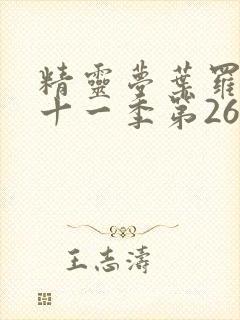 精靈夢葉羅
十一季第26
王志濤